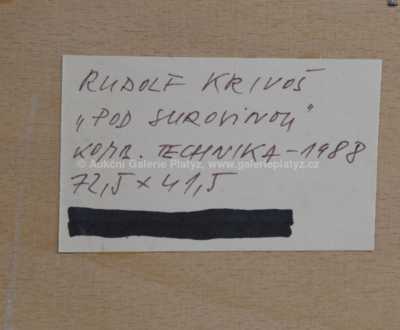 RUDOLF KRIVOŠ
„POD SUROVINOU"
KOMB. TECHNIKA – 1988
© Aukční Galerie Platýz, www.galerieplatyz.cz
72,5 × 41,5